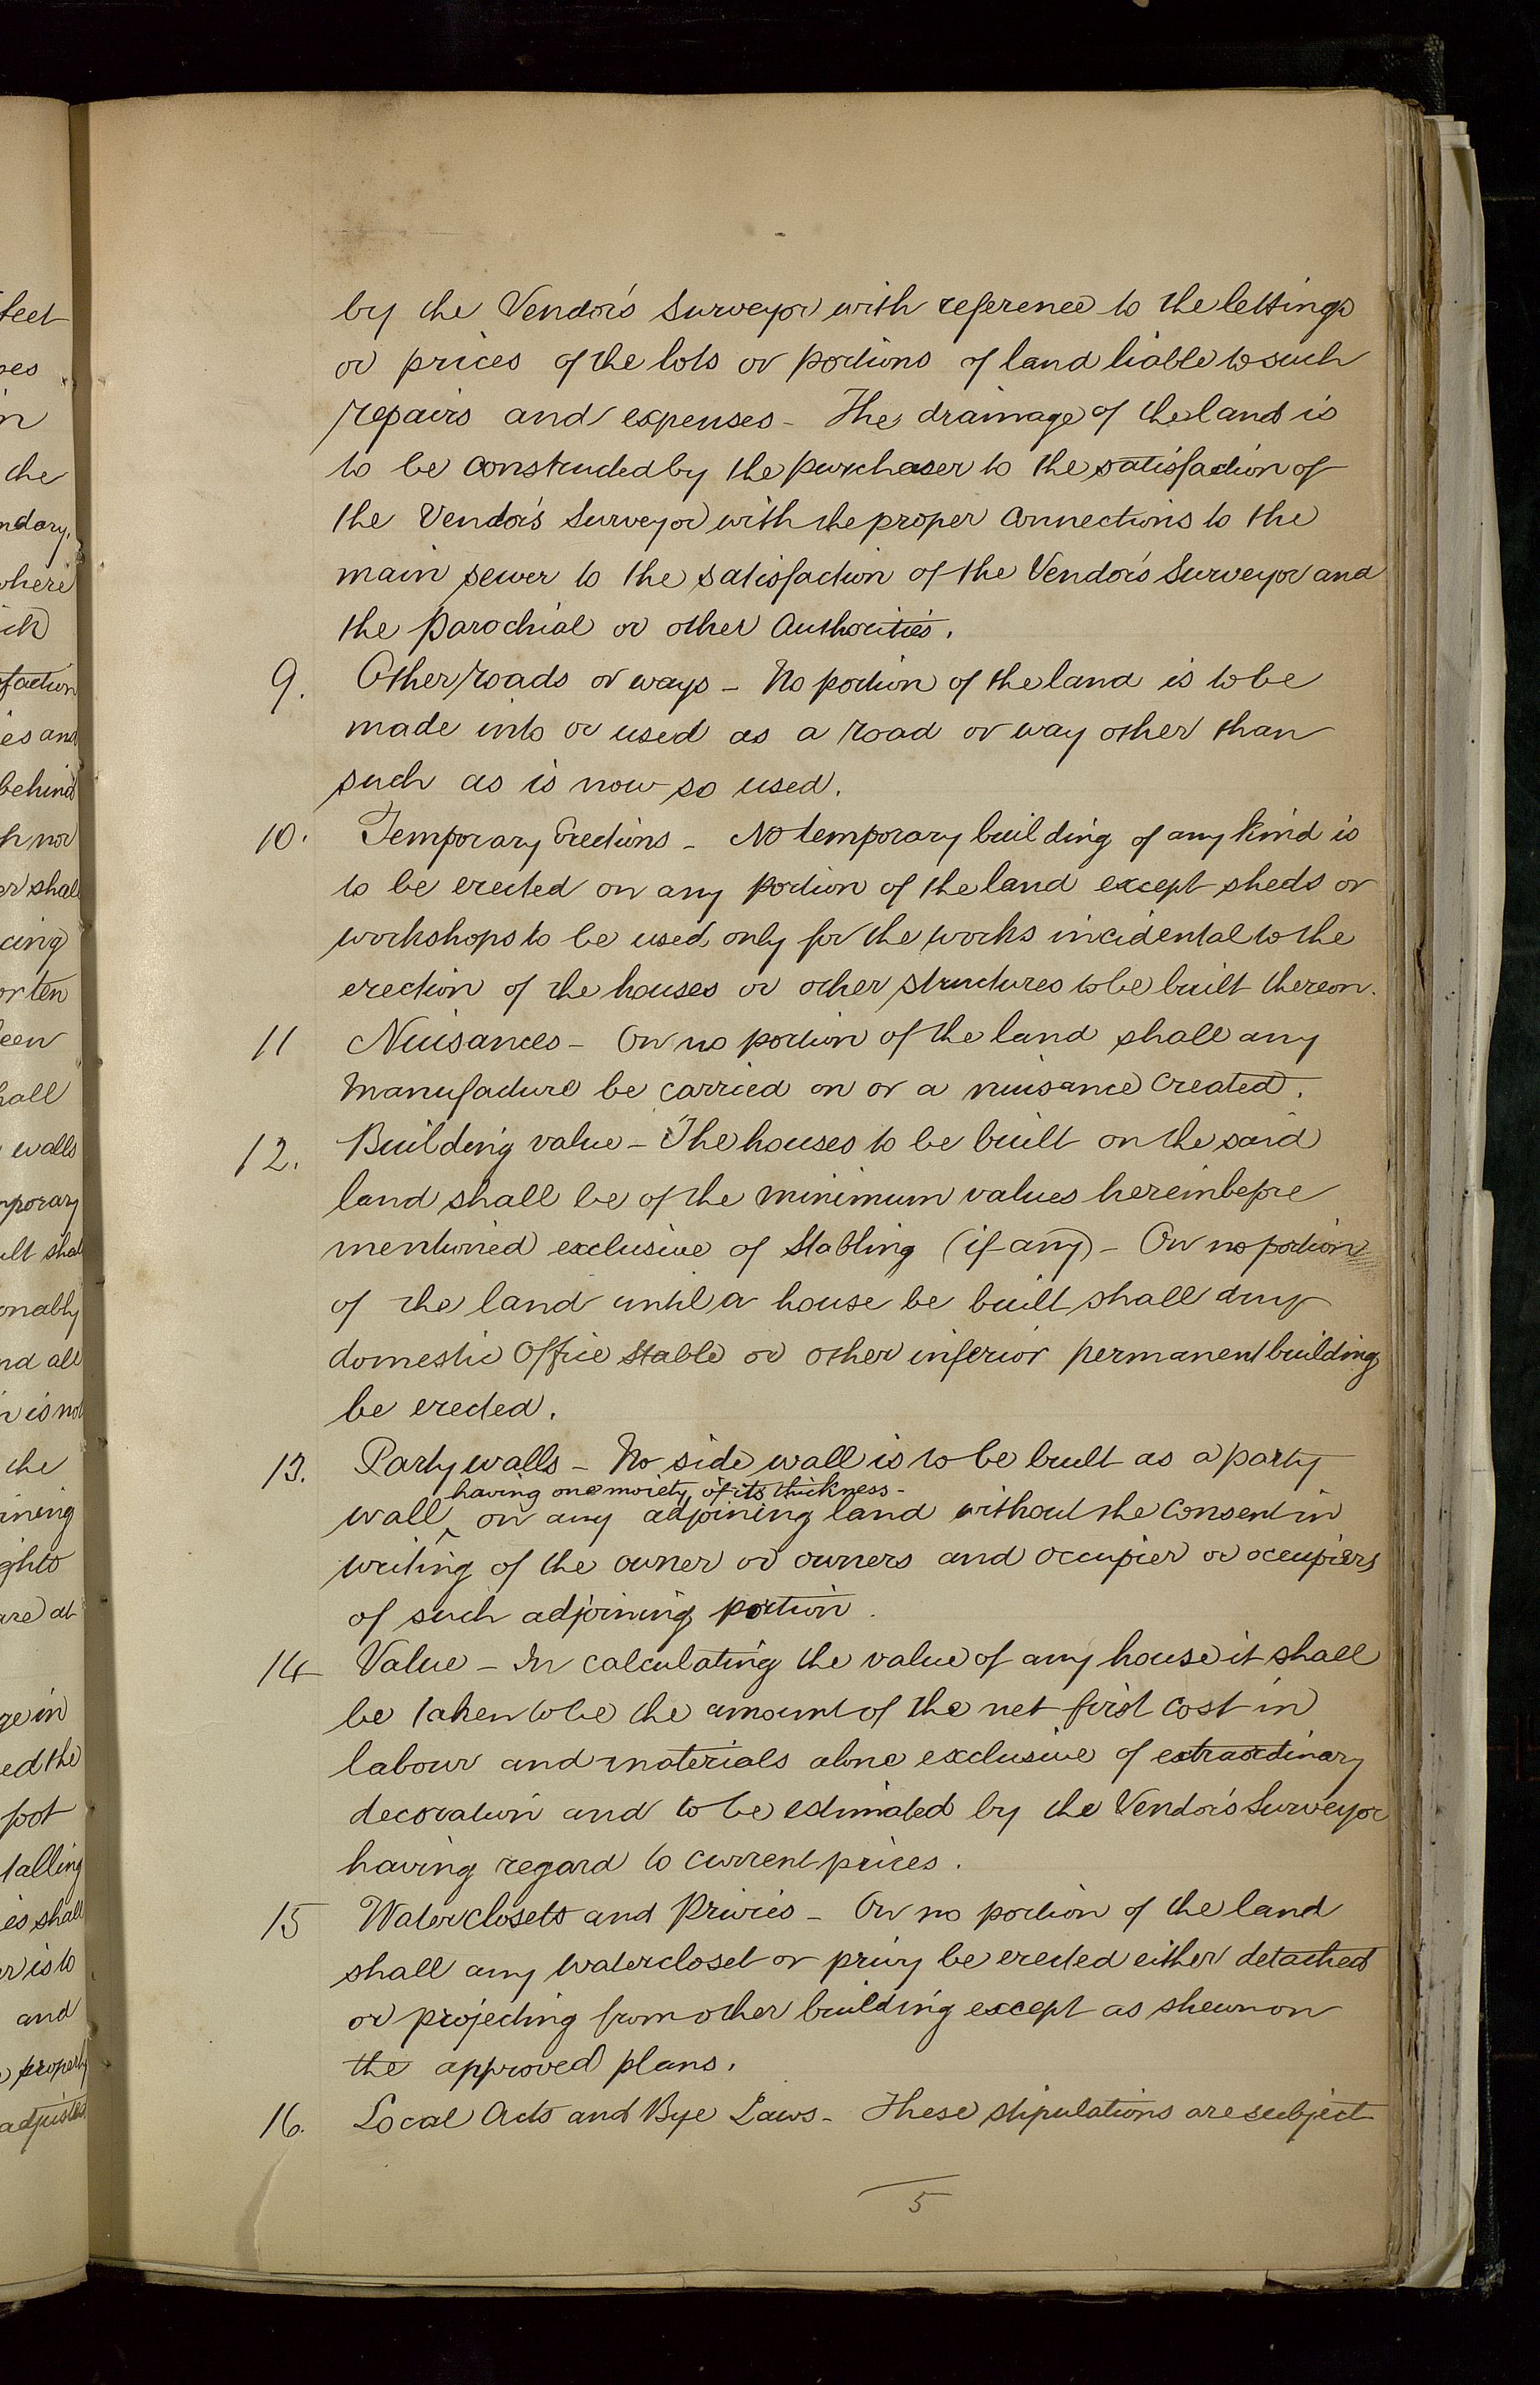 by the Vendor's Surveyor with reference to the lettings
or prices of the lots or portions of land liable to such
repairs and expenses - The drainage of the land is
to be constructed by the purchaser to the satisfaction of
the Vendor's Surveyor with the proper connections to the
main sewer to the satisfaction of the Vendor's Surveyor and
the Parochial or other Authorities.
9. Other roads or ways - No portion of the land is to be
made into or used as a road or way other than
such as is now so used.
10. Temporary Erections - No temporary building of any kind is
to be erected on any portion of the land except sheds or
workshops to be used only for the works incidental to the
erection of the houses or other structures to be built thereon.
11 Nuisances - On no portion of the land shall any
Manufacture be carried on or a nuisance created.
12. Building value - The houses to be built on the said
land shall be of the minimum values hereinbefore
mentioned exclusive of Stabling (if any) - On no portion
of the land until a house be built shall any
domestic Office Stable or other inferior permanent building
be erected.
13. Party walls - No side wall is to be built as a party
having one moiety of its thickness -
wall ^ on any adjoining land without the consent in
writing of the owner or owners and occupier or occupiers
of such adjoining portion.
14 Value - In calculating the value of any house it shall
be taken to be the amount of the net first cost in
labour and materials alone exclusive of extraordinary
decoration and to be estimated by the Vendor's Surveyor
having regard to current prices.
15 Waterclosets and Privies - On no portion of the land
shall any watercloset or privy be erected either detached
or projecting from other building except as shewn on
the approved plans.
16. Local Acts and Bye Laws - These stipulations are subject
5